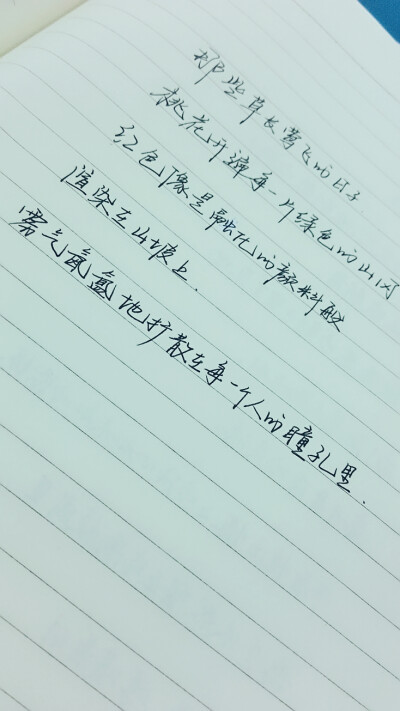 那些草长莺飞的日子
桃花开满每一片绿色的山冈
红色像是融化的颜料般
渲染在山坡上.
雾气氤氲地扩散在每一个人的瞳孔里.